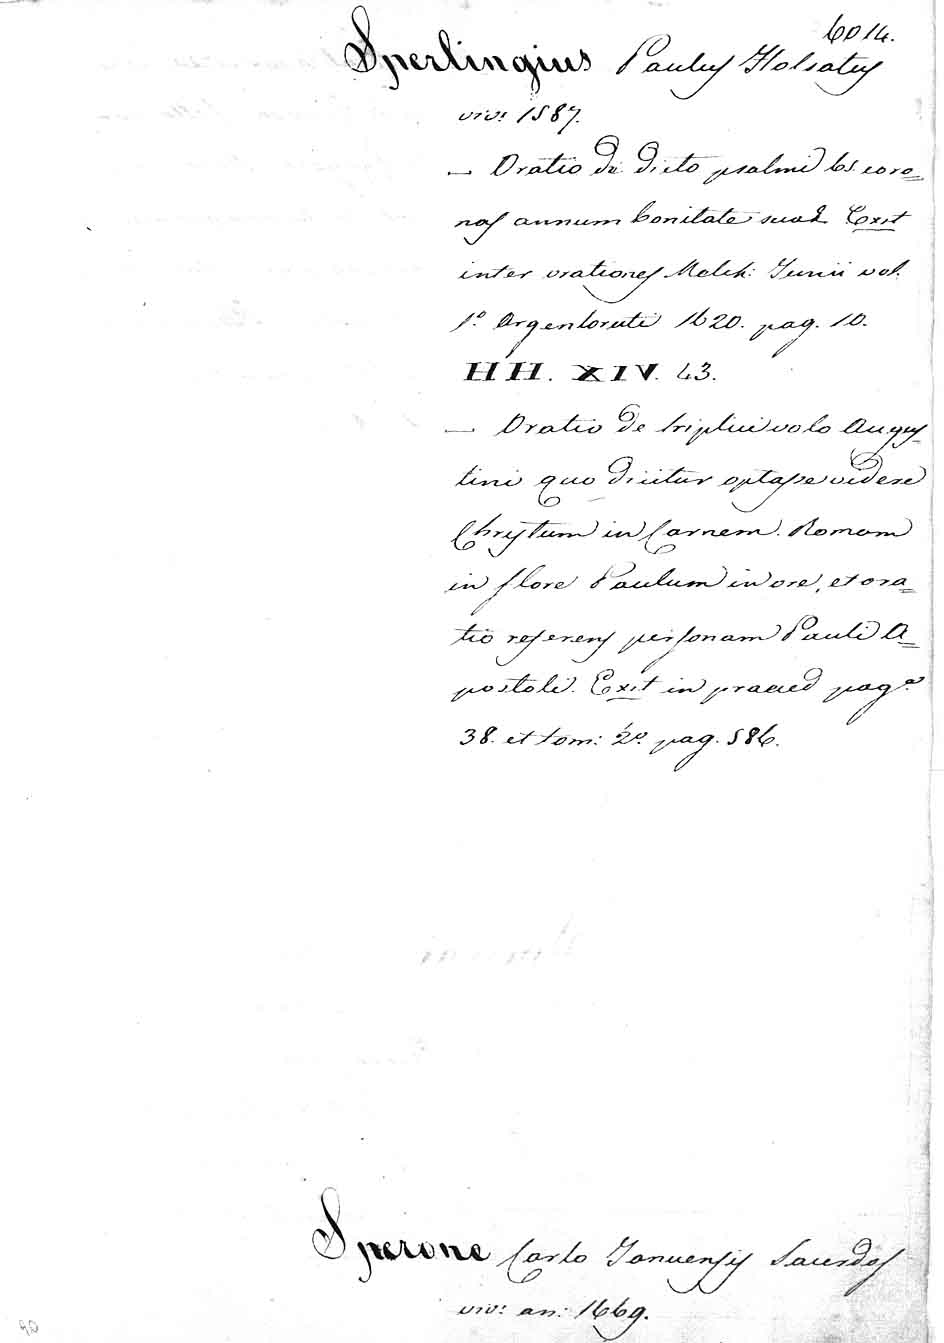 6014.
Sperlingius Paulus Holsatus
viv: 1587.
— Oratio de dicto psalmi 65. coro=
nas annum bonitate suae Exit
inter orationes Melch: Junii vol.
1.º Argentorati 1620. pag. 10.
HH. XIV. 43.
— Oratio de triplici voto Augus=
tini quo dicitur optasse videre
Chrystum in Carnem. Romam
in flore Paulum in ore, et ora=
tio referens personam Pauli A=
postoli. Exit in praeced pag.ª
38. et tom: 2.º pag. 586.
Sperone Carlo Januensis Sacerdos
viv: an: 1669.
90